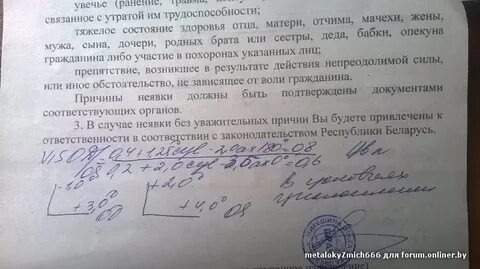 увечье (ранение, травма,
связанное с утратой им трудоспособности;
тяжелое состояние здоровья отца, матери, отчима, мачехи, жены,
мужа, сына, дочери, родных брата или сестры, деда, бабки, опекуна
гражданина либо участие в похоронах указанных лиц;
препятствие, возникшее в результате действия непреодолимой силы,
или иное обстоятельство, не зависящее от воли гражданина.
Причины неявки должны быть подтверждены документами
соответствующих органов.
3. В случае неявки без уважительных причин Вы будете привлечены к
ответственности в соответствии с законодательством Республики Беларусь.
0,4+1,25 cyl -2,0 ax 180°=0,8
OS 0,2 + 2,0 cyl -3,0 ax 0°=0,6
-1,0° +2,0°
+3,0° +4,0° OS
в
циклоплегии
metaloky2mich666 для forum.onliner.by